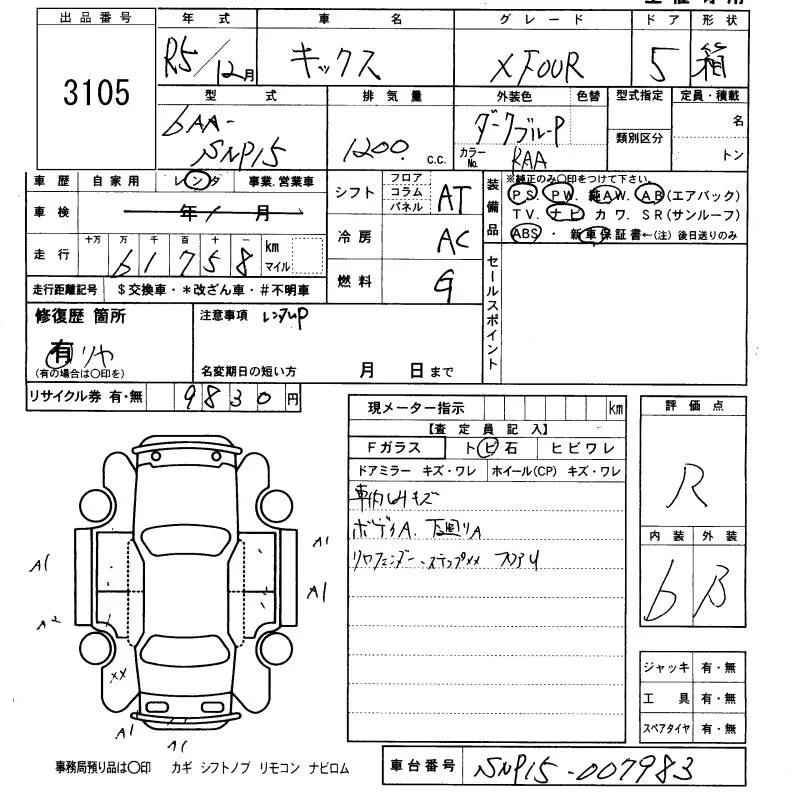 出品番号 年式 車名 グレード ドア 形状
3105 R5/12月 キックス X FOUR 5 箱
型式 排気量 外装色 色替 型式指定 定員・積載
6AA-SNP15 1200 c.c. ダークブルーP 名
カラーNo. RAA 類別区分 トン
車歴 自家用 レンタ 事業.営業車
車検 年 / 月
走行 十万 万 千 百 十 一 km マイル
61758
走行距離記号 $交換車・*改ざん車・#不明車
シフト フロア コラム パネル AT
冷房 AC
燃料 G
装備品 ※純正のみ〇印をつけて下さい。
PS. PW. 純AW. AB(エアバック)
TV. ナビ カワ. SR(サンルーフ)
ABS・新車保証書←(注) 後日送りのみ
セールスポイント
修復歴 箇所
有 リヤ
(有の場合は〇印を)
注意事項 レンタUP
名変期日の短い方 月 日まで
リサイクル券 有・無 9830円
現メーター指示 km
【査定員記入】
Fガラス トビ石 ヒビワレ
ドアミラー キズ・ワレ ホイール(CP) キズ・ワレ
車内 キズ
ボディA. 下回りA
リヤフェンダー、ステップ フロアU
評価点
R
内装 外装
6 B
ジャッキ 有・無
工具 有・無
スペアタイヤ 有・無
A1 A1
A1
A2
XX
A1
A1
事務局預り品は〇印 カギ シフトノブ リモコン ナビロム
車台番号 SNP15-007983